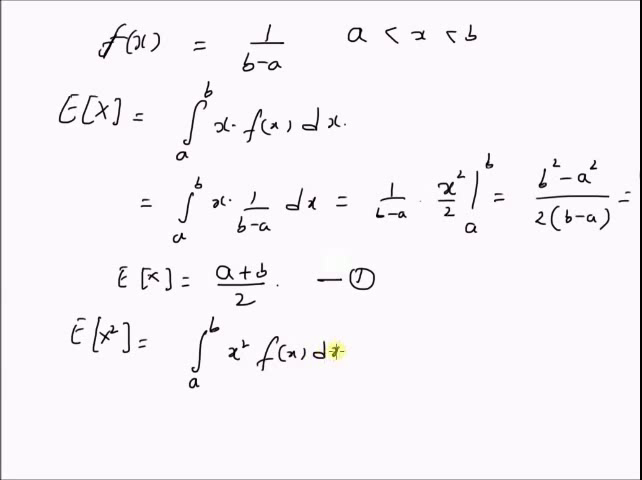 f(x) = 1/(b-a) a < x < b
E[X] = ∫_a^b x. f(x) dx.
= ∫_a^b x. 1/(b-a) dx = 1/(b-a) . x²/2 |_a^b = (b²-a²)/(2(b-a)) =
E[x] = (a+b)/2. — ①
E[x²] = ∫_a^b x² f(x) dx